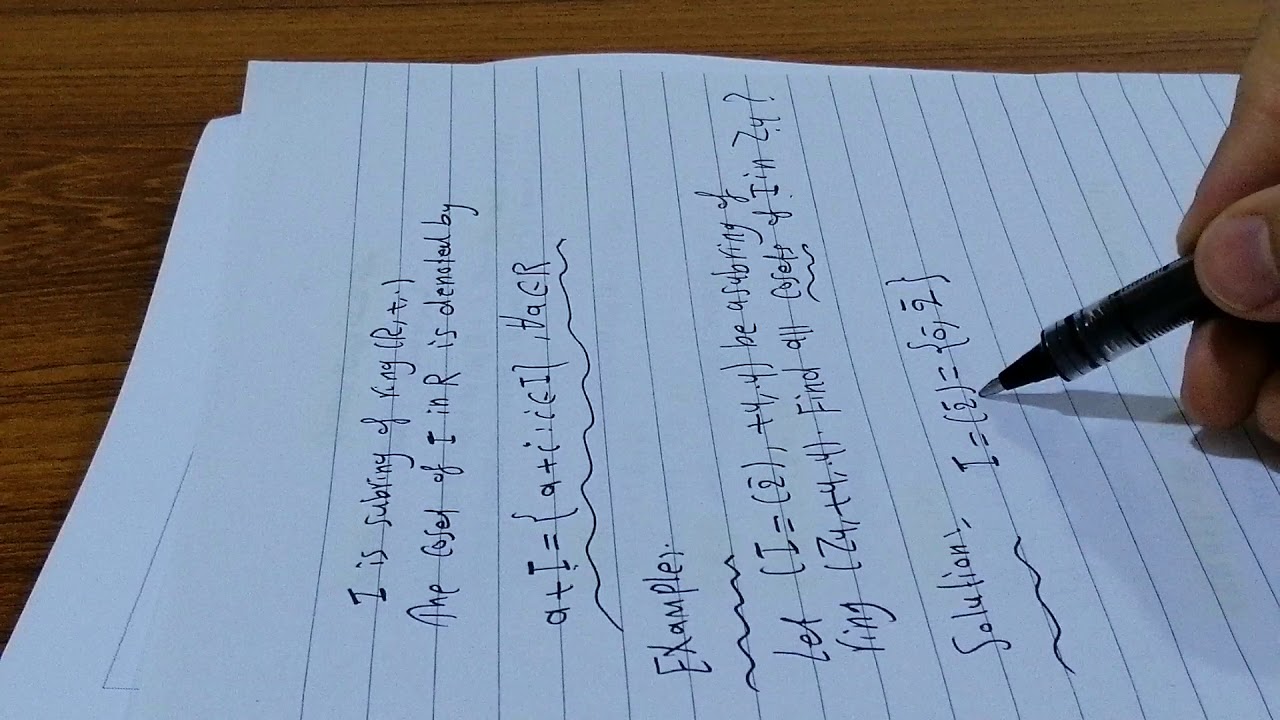 I is subring of ring (R,+,.)
The coset of I in R is denoted by
a+I={a+i:i∈I}, ∀a∈R
Example:
Let (I=(2̄),+4,.4) be a subring of
ring (Z4,+4,.4). Find all cosets of I in Z4?
Solution:. I=(2̄)={0̄,2̄}